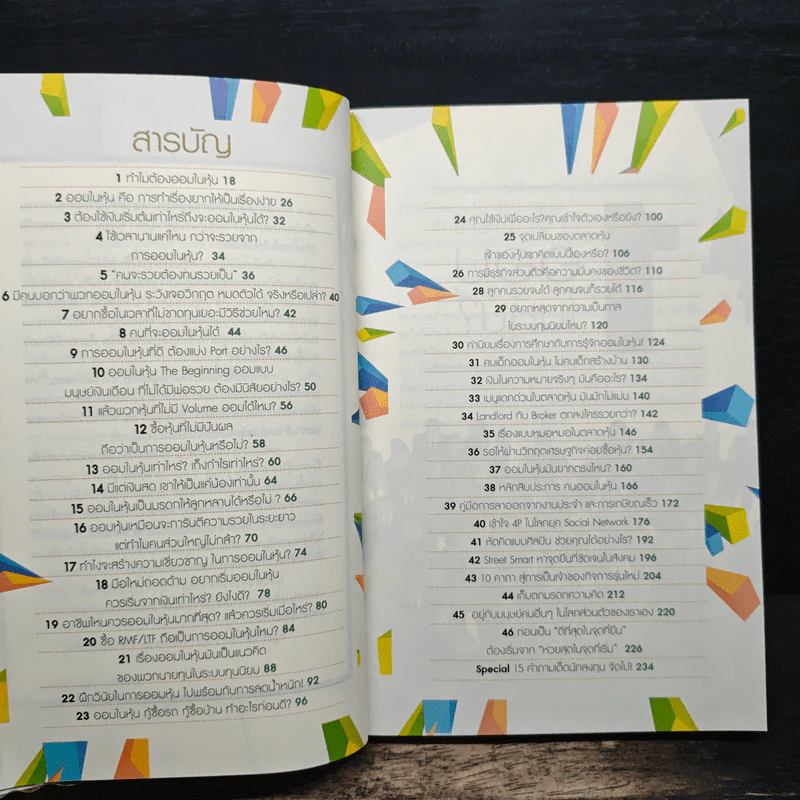 สารบัญ
1 ทำไมต้องออมในหุ้น 18
2 ออมในหุ้น คือ การทำเรื่องยากให้เป็นเรื่องง่าย 26
3 ต้องใช้เงินเริ่มต้นเท่าไหร่ถึงจะออมในหุ้นได้? 32
4 ใช้เวลานานแค่ไหน กว่าจะรวยจาก
การออมในหุ้น? 34
5 "คนจะรวยต้องทนรวยเป็น" 36
6 มีคนบอกว่าพวกออมในหุ้น ระวังเจอวิกฤต หมดตัวได้ จริงหรือเปล่า? 40
7 อยากซื้อในเวลาที่ไม่ขาดทุนเยอะมีวิธีช่วยไหม? 42
8 คนที่จะออมในหุ้นได้ 44
9 การออมในหุ้นที่ดี ต้องแบ่ง Port อย่างไร? 46
10 ออมในหุ้น The Beginning ออมแบบ
มนุษย์เงินเดือน ที่ไม่ได้มีพ่อรวย ต้องมีนิสัยอย่างไร? 50
11 แล้วพวกหุ้นที่ไม่มี Volume ออมได้ไหม? 56
12 ซื้อหุ้นที่ไม่มีปันผล
ถือว่าเป็นการออมในหุ้นหรือไม่? 58
13 ออมในหุ้นเท่าไหร่? เก็งกำไรเท่าไหร่? 60
14 มีแต่เงินสด เขาให้เป็นแค่น้องเท่านั้น 64
15 ออมในหุ้นเป็นมรดกให้ลูกหลานได้หรือไม่ ? 66
16 ออมหุ้นเหมือนจะการันตีความรวยในระยะยาว
แต่ทำไมคนส่วนใหญ่ไม่กล้า? 70
17 ทำไงจะสร้างความเชี่ยวชาญ ในการออมในหุ้น? 74
18 มือใหม่ถอดด้าม อยากเริ่มออมในหุ้น
ควรเริ่มจากเงินเท่าไหร่? ยังไงดี? 78
19 อาชีพไหนควรออมในหุ้นมากที่สุด? แล้วควรเริ่มเมื่อไหร่? 80
20 ซื้อ RMF/LTF ถือเป็นการออมในหุ้นไหม? 84
21 เรื่องออมในหุ้นมันเป็นแนวคิด
ของพวกนายทุนในระบบทุนนิยม 88
22 ฝึกวินัยในการออมหุ้น ไปพร้อมกับการลดน้ำหนัก! 92
23 ออมในหุ้น กู้ซื้อรถ กู้ซื้อบ้าน ทำอะไรก่อนดี? 96
24 คุณใช้เงินเพื่ออะไร?คุณเข้าใจตัวเองหรือยัง? 100
25 จุดเปลี่ยนของตลาดหุ้น
เจ้าของหุ้นเขาคิดแบบนี้เองหรือ? 106
26 การมีธุรกิจส่วนตัวคือความมั่นคงของชีวิต? 110
28 ลูกคนรวยจนได้ ลูกคนจนก็รวยได้ 116
29 อยากหลุดจากความเป็นทาส
ในระบบทุนนิยมไหม? 120
30 ค่านิยมเรื่องการศึกษากับการรู้จักออมในหุ้น! 124
31 คนเด็กออมในหุ้น ไม่คบเด็กสร้างบ้าน 130
32 เงินในความหมายจริงๆ มันคืออะไร? 134
33 เมนูแดกด่วนในตลาดหุ้น มันมักไม่แม่น 140
34 Landlord กับ Broker ตกลงใครรวยกว่า? 142
35 เรื่องแบบหมอหมอในตลาดหุ้น 146
36 รอให้ผ่านวิกฤตเศรษฐกิจค่อยซื้อหุ้น? 154
37 ออมในหุ้นมันยากตรงไหน? 160
38 หลักสิบประการ คนออมในหุ้น 166
39 คู่มือการลาออกจากงานประจำ และการเกษียณเร็ว 172
40 เข้าใจ 4P ในโลกยุค Social Network 176
41 หัดคิดแบบศิลปิน ช่วยคุณได้อย่างไร? 192
42 Street Smart หาจุดยืนที่ชัดเจนในสังคม 196
43 10 คาถา สู่การเป็นเจ้าของกิจการรุ่นใหม่ 204
44 เก็บตกมรดกความคิด 212
45 อยู่กับมนุษย์คนอื่นๆ ในโลกส่วนตัวของเราเอง 220
46 ก่อนเป็น "ดีที่สุดในจุดที่ยืน"
ต้องเริ่มจาก "ห่วยสุดในจุดที่เริ่ม" 226
Special 15 คำถามเด็ดนักลงทุน จัดไป! 234